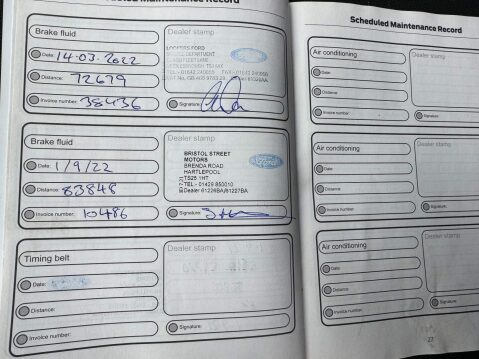 Maintenance Record
Brake fluid
Date: 14-03-2022
Distance: 72679
Invoice number: 38436
Dealer stamp
FORD
Signature:
Brake fluid
Date: 1/9/22
Distance: 83848
Invoice number: 10486
Dealer stamp
BRISTOL STREET
MOTORS
BRENDA ROAD
HARTLEPOOL
TS25 1HT
TEL - 01429 850010
Dealer 61226BA/61227BA
Ford
Signature:
Timing belt
Date:
Distance:
Invoice number:
Dealer stamp
Signature:
Scheduled Maintenance Record
Air conditioning
Date
Distance
Invoice number
Dealer stamp
Signature:
Air conditioning
Date
Distance
Invoice number
Dealer stamp
Signature:
Air conditioning
Date
Distance
Invoice number
Dealer stamp
Signature:
27